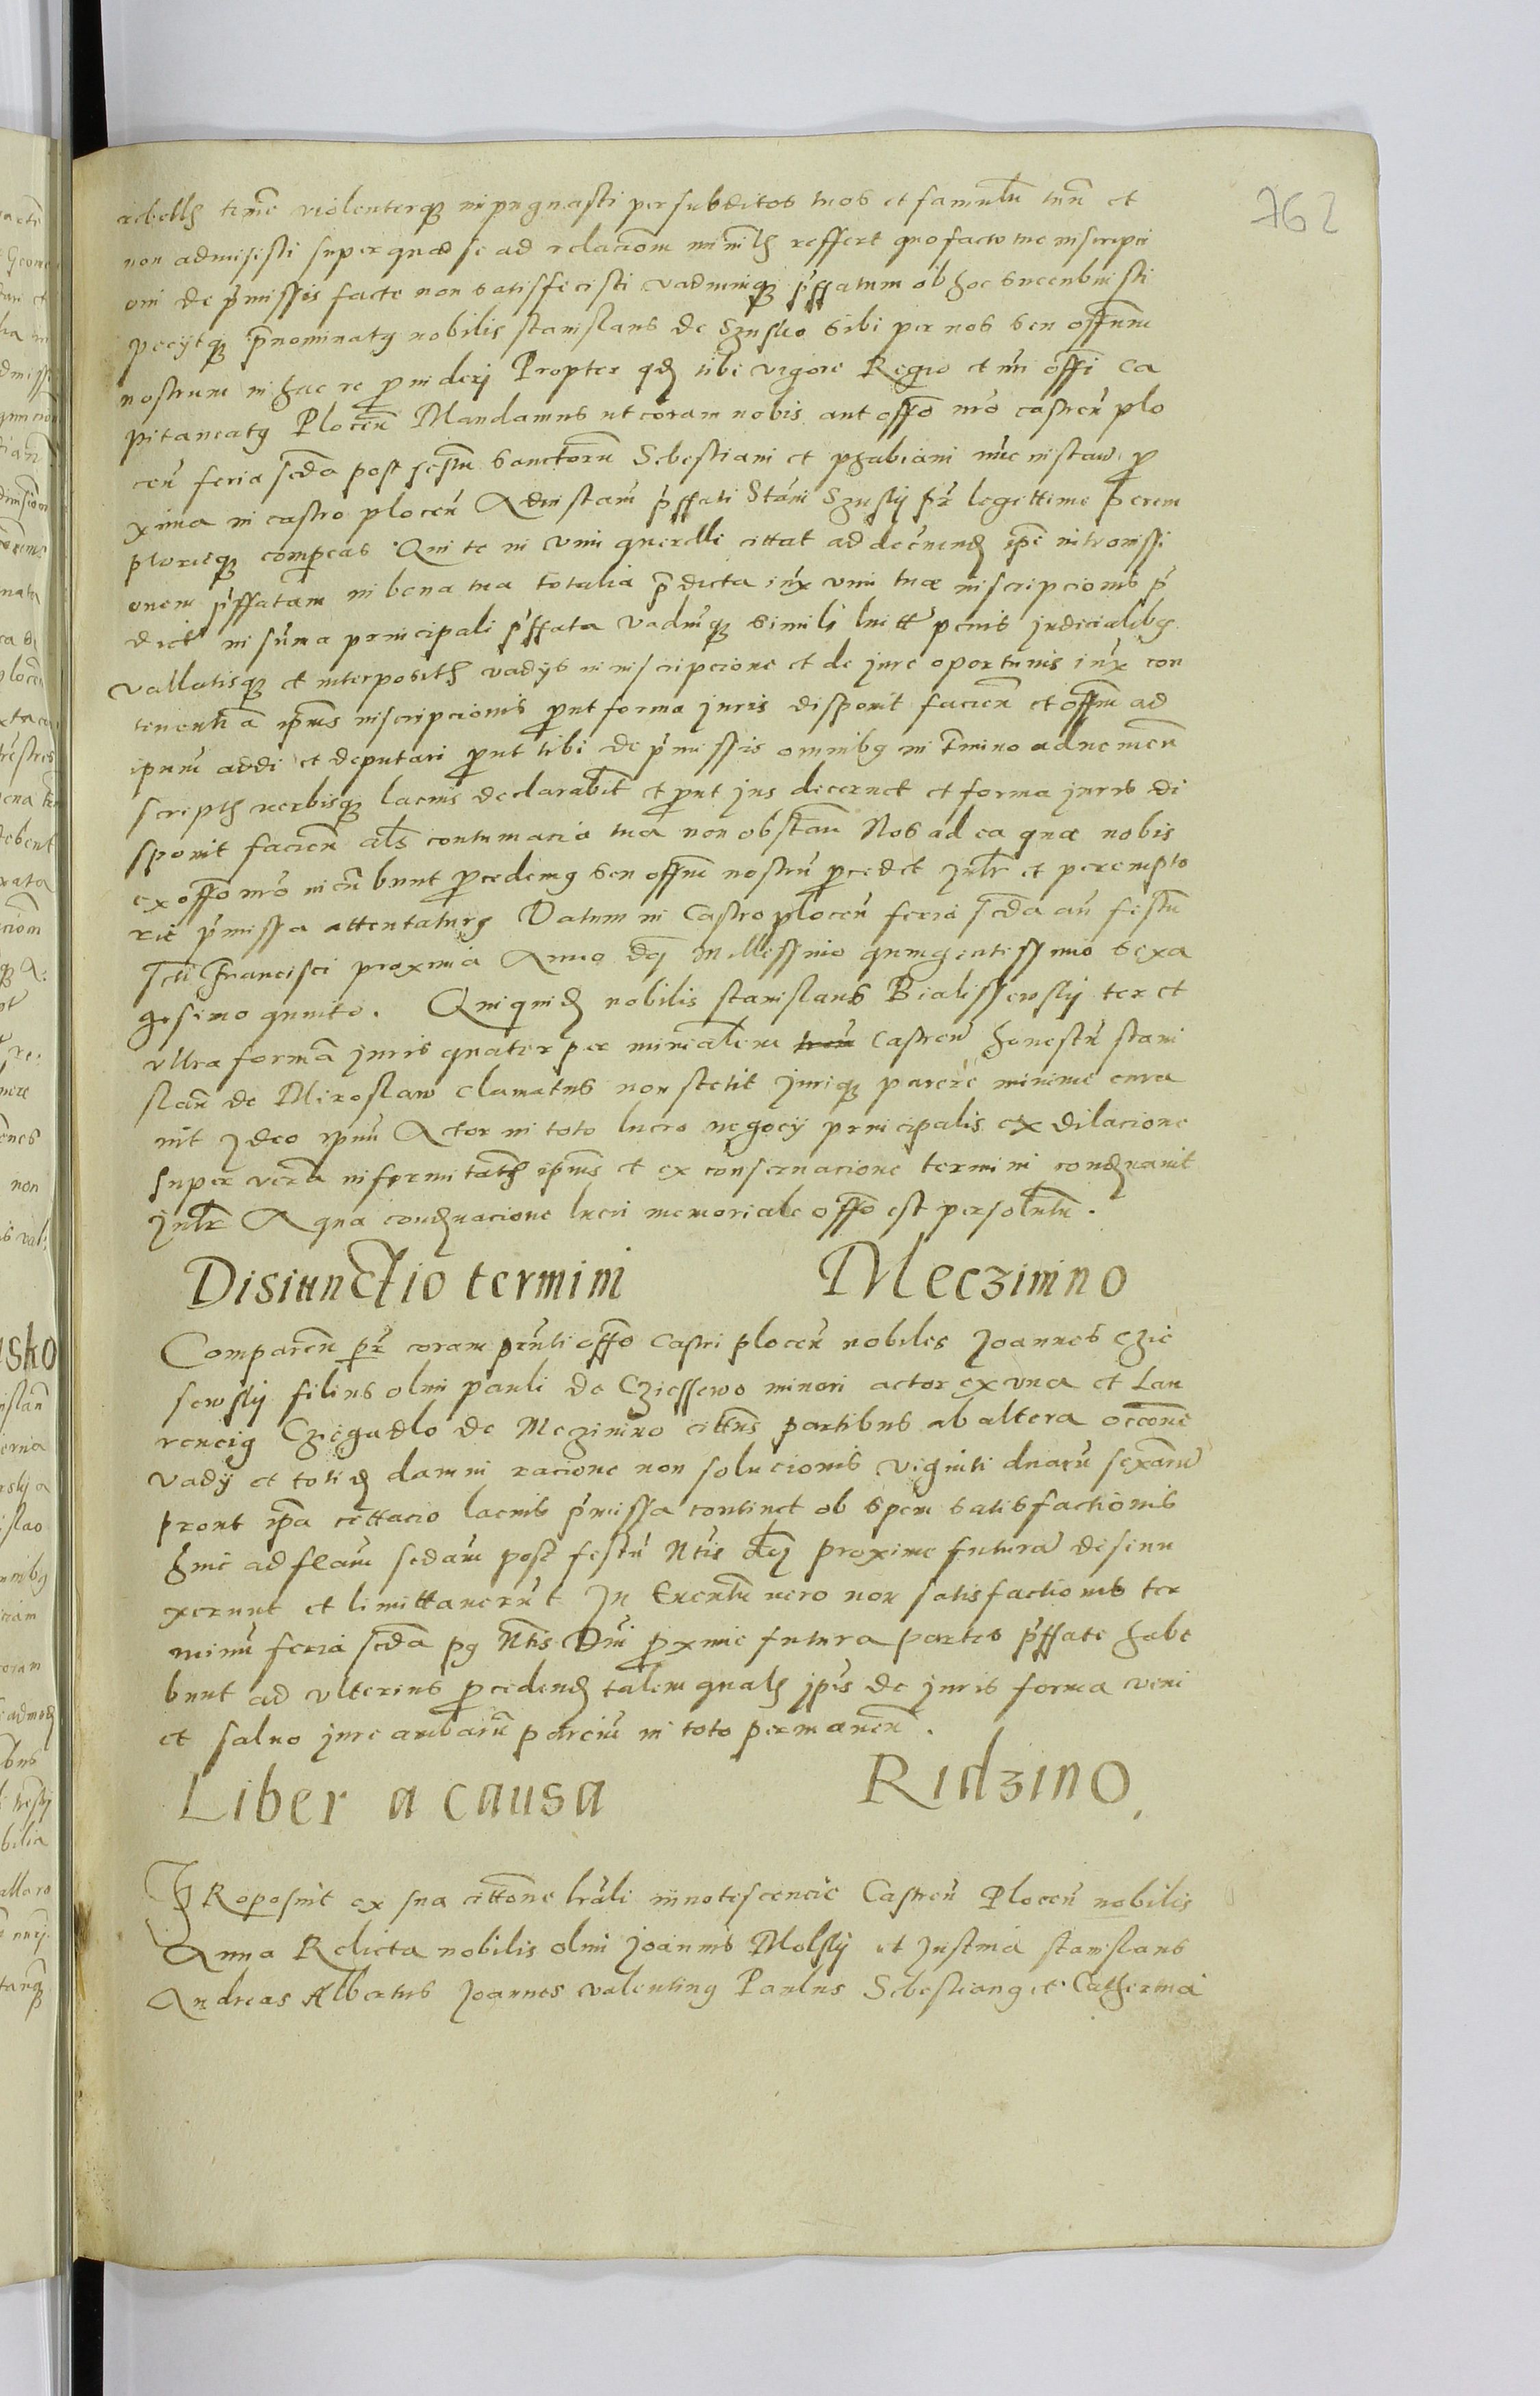 762
rebellis temere violenterq impugnasti per subditos tuos et famulũ tuũ et
non admisisti super quæ se ad relacionẽ minrlis reffert quo facto tue inscripci
oni de p̃missis facte non satisfecisti vadiumq p̃ffatum ob hoc sucenbuisti
peciitq p̃nominatus nobilis stanislaus de Szusko sibi per nos seu offium
nostrum in hac re ꝓvideri Propter qđ tibi vigore Regio et nr̃i offi Ca
pitaneatus Plocen̄ Mandamus ut coram nobis aut offo nr̃o castren̄ plo
cen̄ feria sc̃da post festũ Sanctorũ Sebestiani et phabiani nũc instan̄ ꝓ
xima in castro plocen̄ Ad instan̄ p̃ffati Stani Szusky pr̃ legittime perem
ptorieq compeas Qui te in vim querelle cittat ad decernenđ ip̃e intromissi
onem p̃ffatam in bona tua totalia p̃dicta iux vim tuæ inscripcionis p̃
dict in sum̄a principali p̃ffata vadiiq simili luitt penis judicialibus
vallatisq et interpositis vadys in inscripcione et de jure oportunis iux con
tinentiã ip̃ius inscripcionis ꝓut forma juris disponit facien̄ et offm̃ ad
ip̃um addi et deputari ꝓut tibi de p̃missis omnibus in tm̃ino adnemen̄
scriptis verbisq lacius declarabit et ꝓut jus decernet et forma juris di
sponit facien̄ als contumacia tua non obstan̄ Nos ad ea quæ nobis
ex offo nr̃o incũbunt ꝓcedemus seu offm̃ nostrũ ꝓcedet Julr et perempto
rie p̃missa attentaturus Datum in Castro plocen̄ feria sc̃da an̄ festũ
Scti Francisci proxima Anno dnj Millessimo quingentissimo sexa
gesimo quinto. Quiquiđ nobilis stanislaus Bialissewsky ter et
ultra formã juris quater per minrialem Castren̄ honestũ stani
slaũ de Miroslaw clamatus non stetit jurisq parere minime cura
vit Jdeo ip̃um Actor in toto lucro negocy principalis ex dilacione
super verã infirmitatis ip̃ius et ex conservacione termini conđnavit
Julr A qua conđnacione lucri memoriale offo est persolutũ.
Disiunctio termini Meczimino
Comparen̄ pr̃ coram pr̃nti offo Castri plocen̄ nobiles Joannes Czie
sewsky filius olim pauli de Cziessewo minori actor ex vna et Lau
rencius Cziegadlo de Meczimino cittus partibus ab altera occone
vady et totiđ damni racione non solucionis viginti duarũ sexarũ
prout ip̃a cittacio lacius p̃missa continet ob spem satisfactionis
hinc ad feam sedam post festũ Ntis dnj proxime futurã disiun
xerunt et limittaverũt In Eventũ vero non satisfactionis ter
minũ feria sc̃da ps Ntis Dni ꝓxime futura partes p̃ffate habe
bunt ad ulterius ꝓcedenđ talem qualis jpis de juris forma veni
et salvo jure ambarũ parcium in toto permanen̄.
Liber a causa Ridzino.
PRoposuit ex sua cittone lrali innotescencie Castren̄ Plocen̄ nobilis
Anna Relicta nobilis olim Joannis Molsky et Justina stanislaus
Andreas Albertus Joannes valentinus Paulus Sebestianus et Catherina